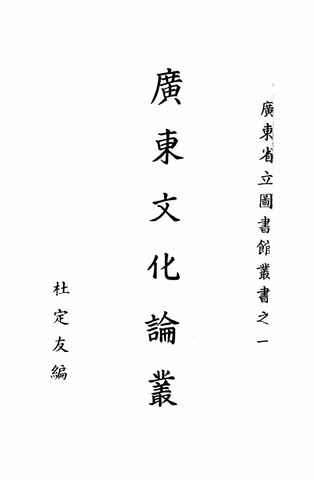 廣東省立圖書館叢書之一
廣東文化論叢
杜定友編